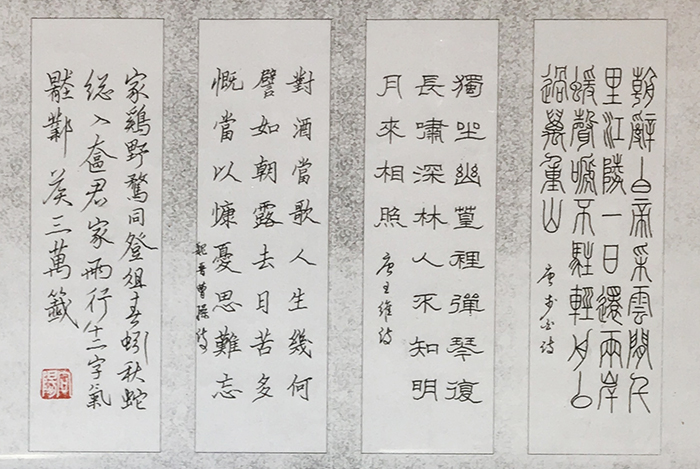 朝辭白帝采雲間千
里江陵一日還兩岸
蝯聲嗁不駐輕舟已
過萬重山
唐李白詩
獨坐幽篁裡彈琴復
長嘯深林人不知明
月來相照
唐王維詩
對酒當歌人生幾何
譬如朝露去日苦多
慨當以慷憂思難忘
魏晋曹操詩
家鷄野鶩同登俎春蚓秋蛇
総入奩君家兩行十二字氣
壓鄴矦三萬籤